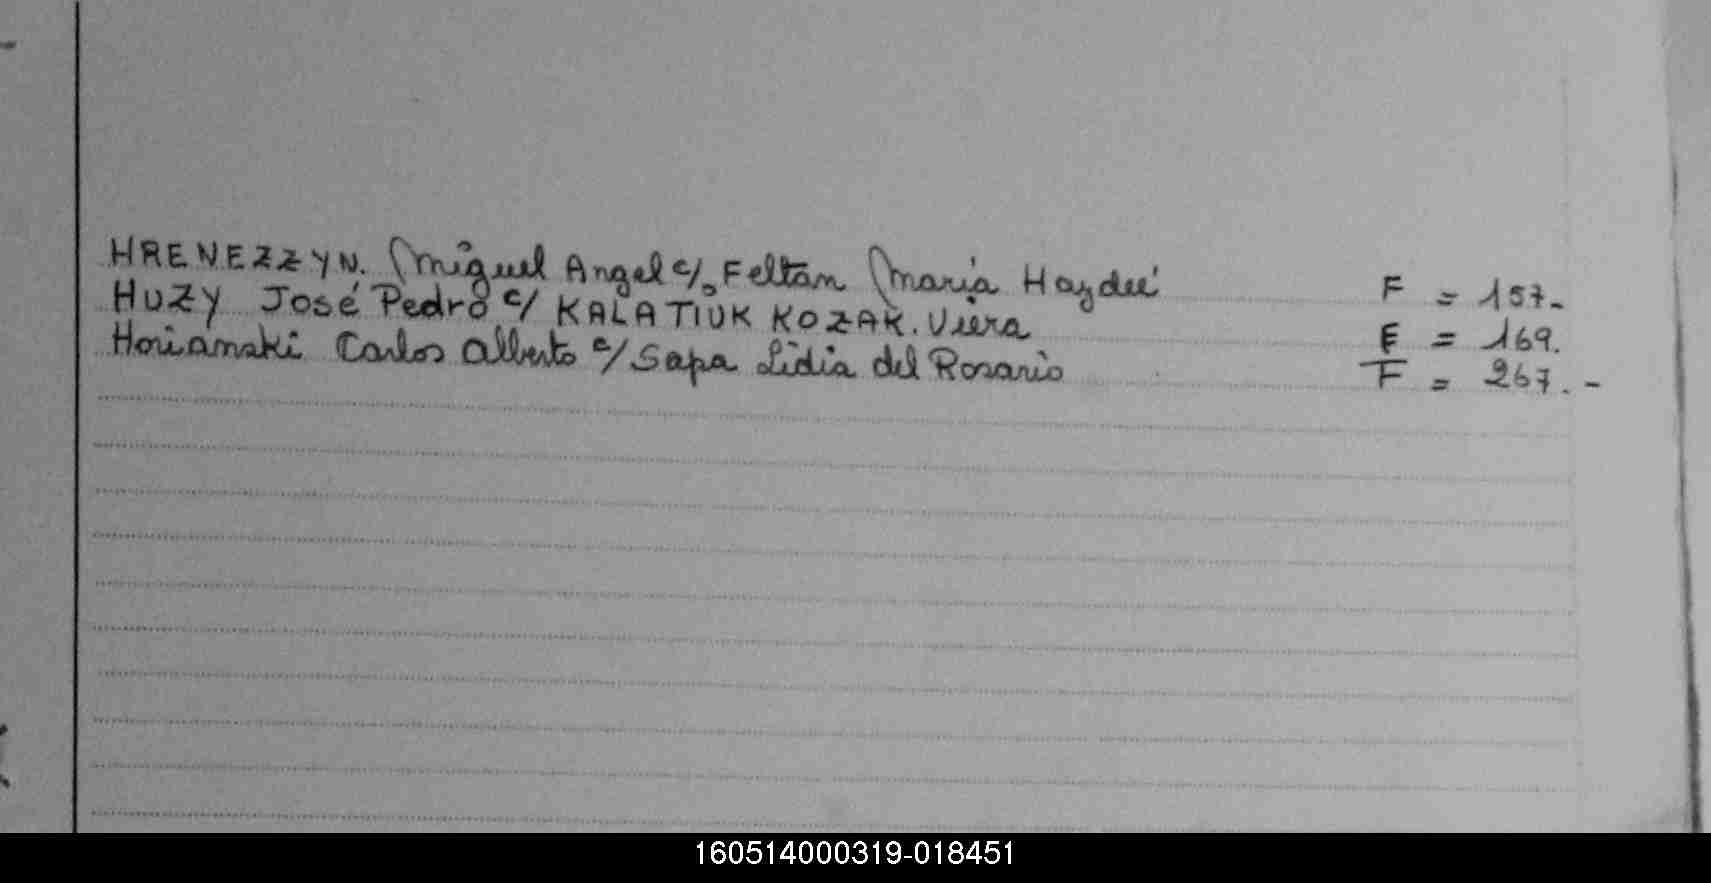 HRENEZZYN. Miguel Angel c/. Feltan Maria Haydeé F = 157-
HUZY José Pedro c/ KALATIUK KOZAK. Viera F = 169.
Horianski Carlos Alberto c/ Sapa Lidia del Rosario F = 267.-
160514000319-018451